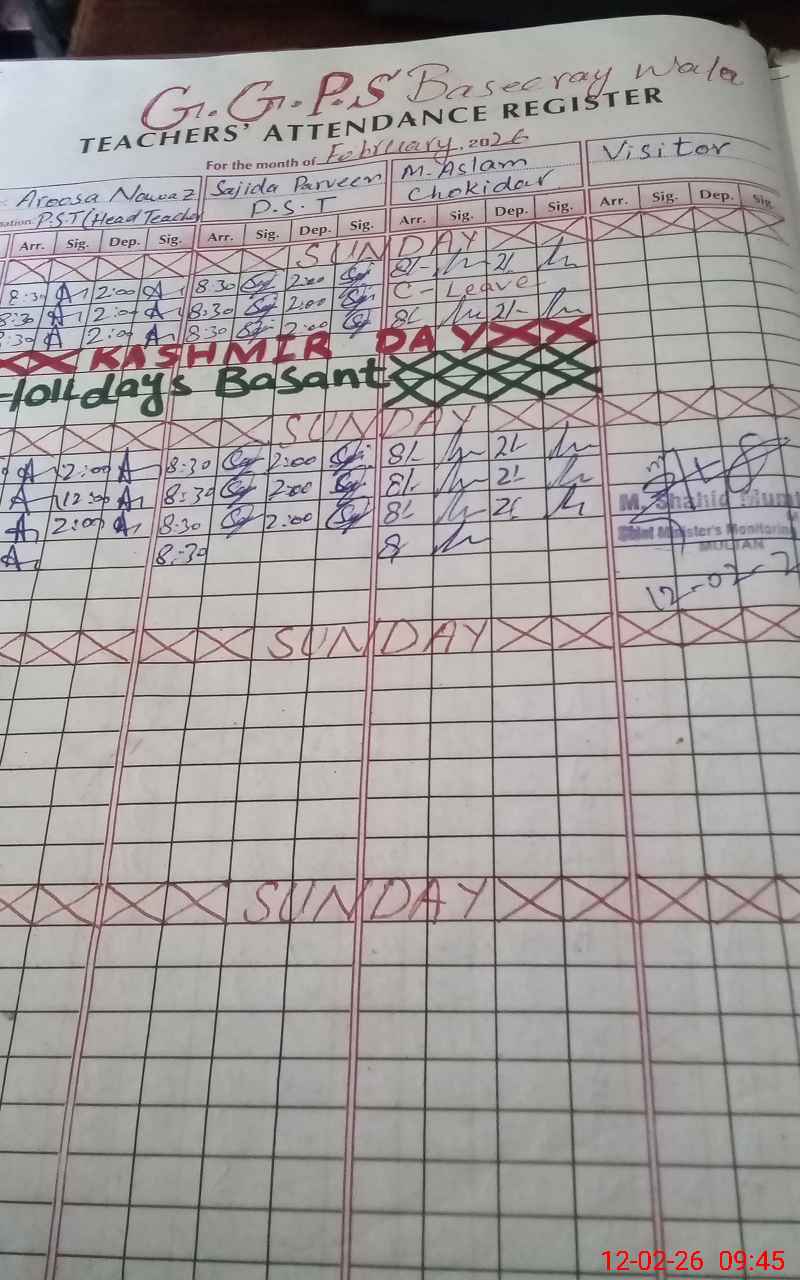 G.G.P.S Baseeray Wala
TEACHERS' ATTENDANCE REGISTER
For the month of February, 2026
Aroosa Nawaz Sajida Parveen M. Aslam Visitor
P.S.T (Head Teache P.S.T Chokidar
Arr. Sig. Dep. Sig. Arr. Sig. Dep. Sig. Arr. Sig. Dep. Sig. Arr. Sig. Dep. Sig.
SUNDAY
8:30 2:00 8:30 2:00 8/- 2/-
8:30 2:00 8:30 2:00 C- Leave
:30 2:00 8:30 2:00 8/- 2/-
KASHMIR DAY
Holidays Basant
SUNDAY
2:00 8:30 2:00 8/- 2/-
12:00 8:30 2:00 8/- 2/-
2:00 8:30 2:00 8/- 2/-
8:30 8
M. Shahid Mumt
Chief Minister's Monitoring
MULTAN
12-02-2
SUNDAY
SUNDAY
12-02-26 09:45